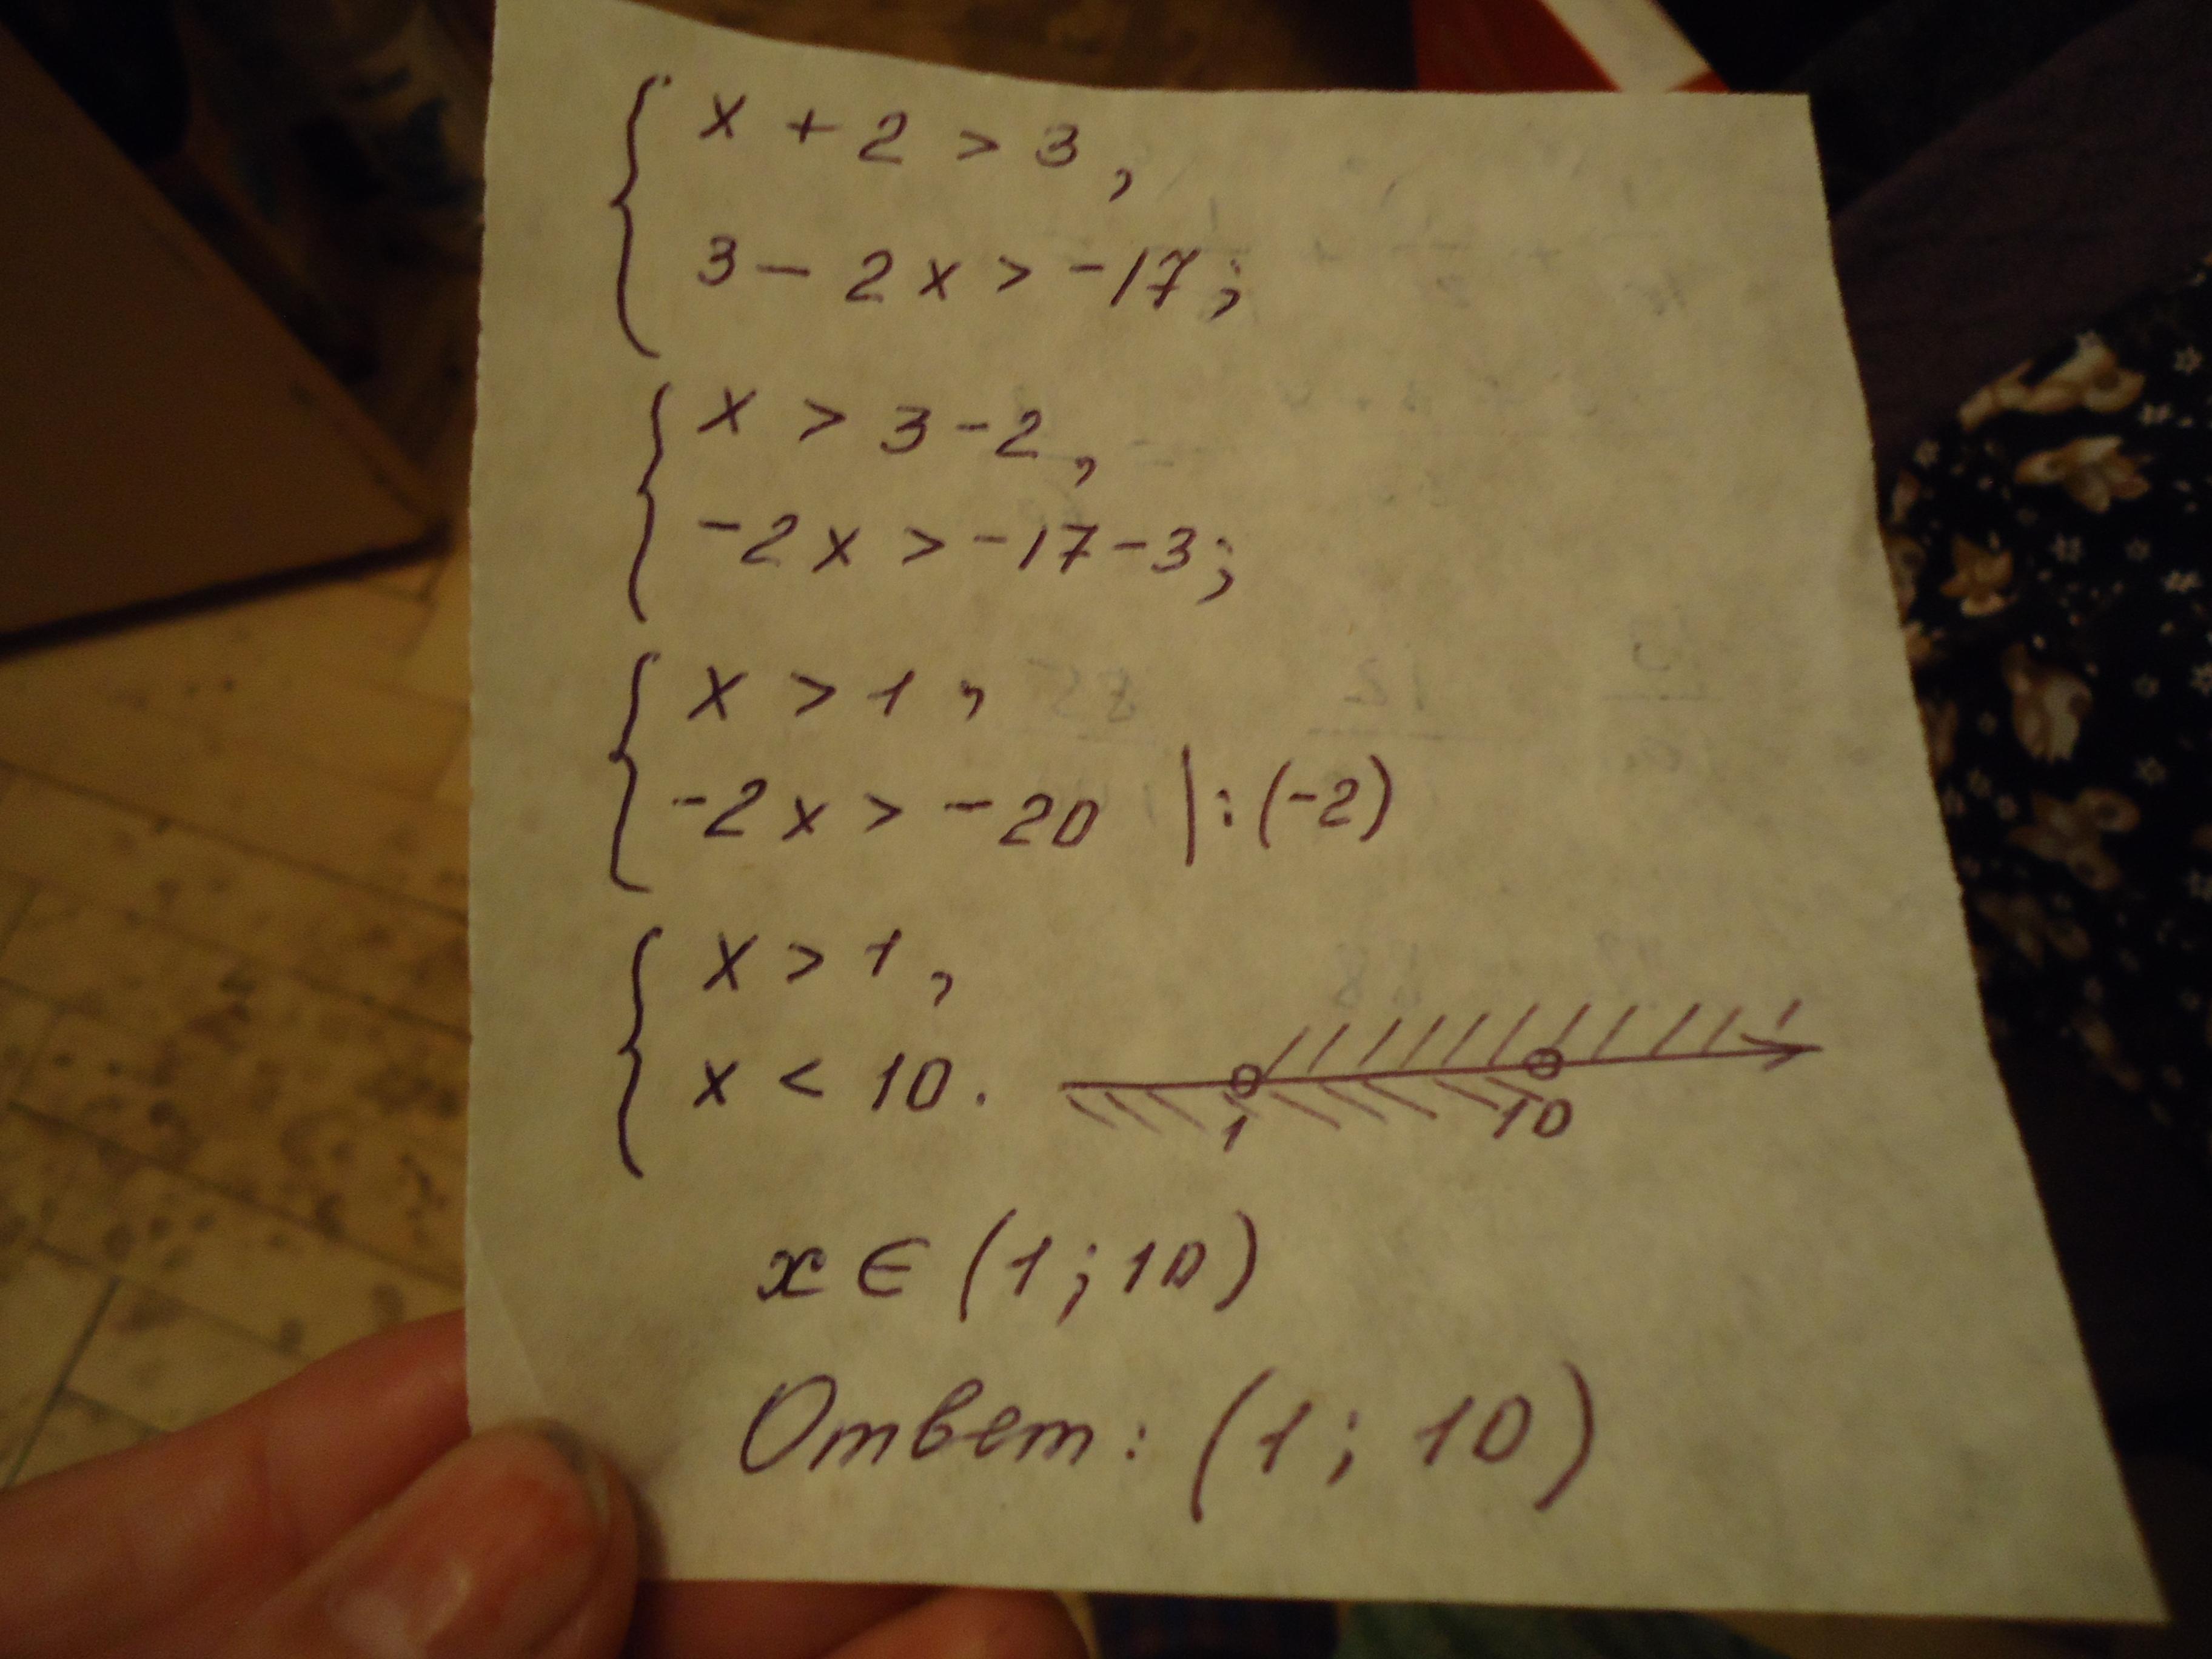 x + 2 > 3,
3 - 2x > -17;
x > 3 - 2,
-2x > -17 - 3;
x > 1,
-2x > -20 | : (-2)
x > 1,
x < 10.
1 10
x ∈ (1; 10)
Ответ: (1; 10)